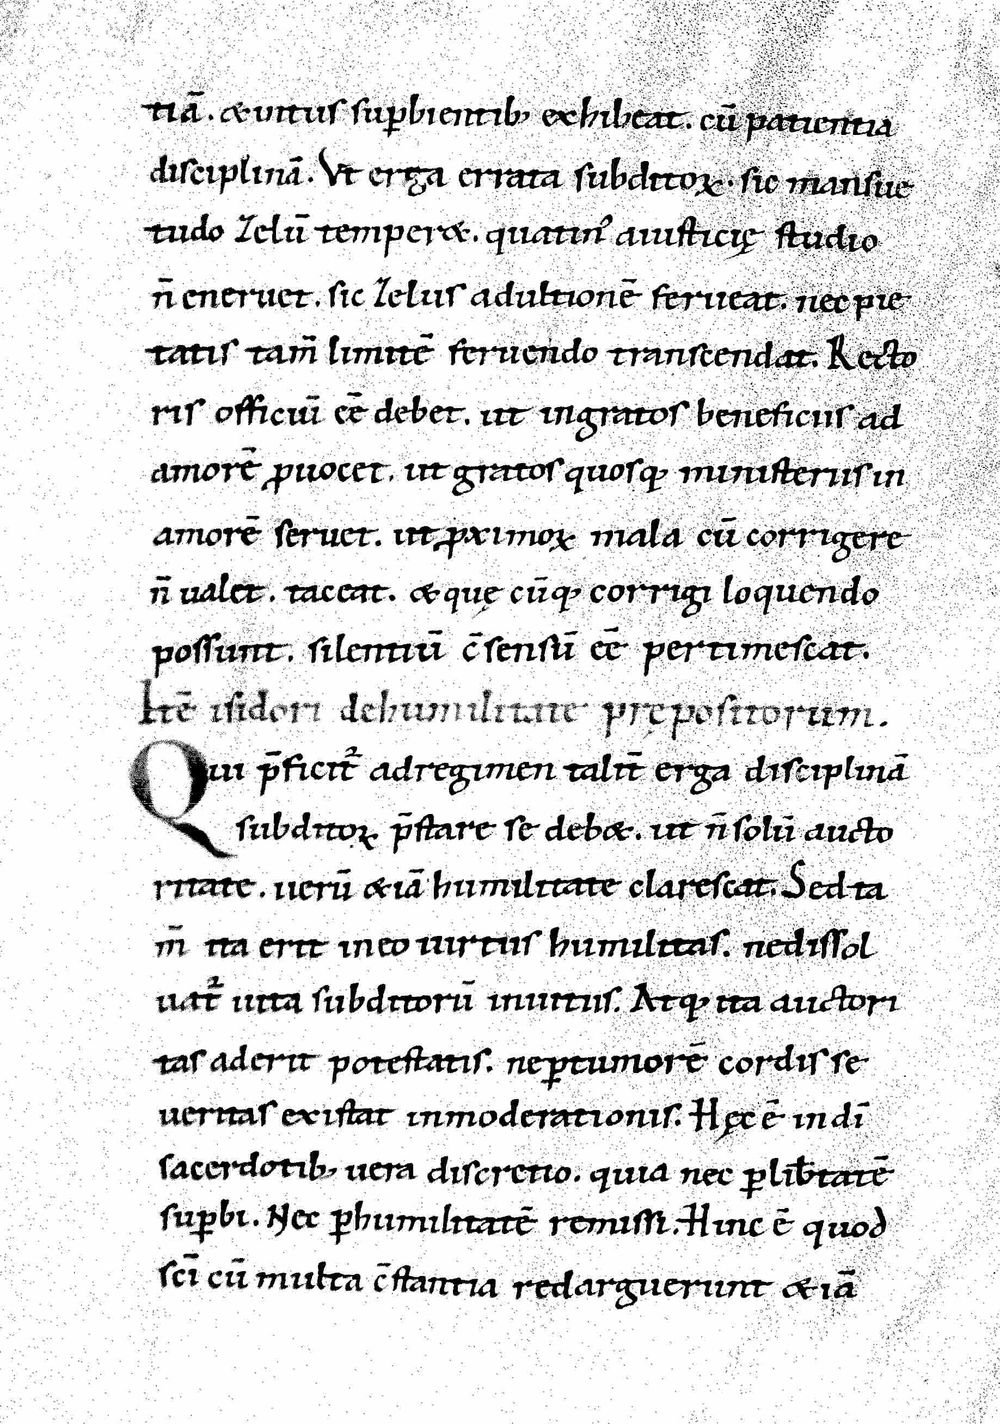 tiā. & uirtus suꝑbientib; exhibeat. cū patientia
disciplinā. Vt erga errata subditoꝝ. sic mansue
tudo zelū temper&. quatin᷒ a iusticię studio
n̄ eneruet. sic zelus adultionē ferueat. nec pie
tatis tam̄ limitē feruendo transcendat. Recto
ris officiū eē debet. ut ingratos beneficiis ad
amorē ꝓuocet. ut gratos quosq; ministeriis in
amorē seruet. ut ꝓximoꝝ mala cū corrigere
n̄ ualet. taceat. & quę cūq; corrigi loquendo
possunt. silentiū c̄sensū eē pertimescat.
Itē isidori de humilitate prępositorum.
Qui p̄ficit᷑ ad regimen talit̄ erga disciplinā
subditoꝝ p̄stare se deb&. ut n̄ solū aucto
ritate. uerū &iā humilitate clarescat. Sed ta
m̄ ita erit in eo uirtus humilitas. ne dissol
uat᷑ uita subditorū in uitiis. Atq; ita auctori
tas aderit potestatis. ne ꝑ tumorē cordis se
ueritas existat inmoderationis. Hęc ē in dī
sacerdotib; uera discretio. quia nec ꝑ lib̄tatē
suꝑbi. Nec ꝑ humilitatē remissi. Hinc ē quod
scī cū multa c̄stantia redarguerunt &iā